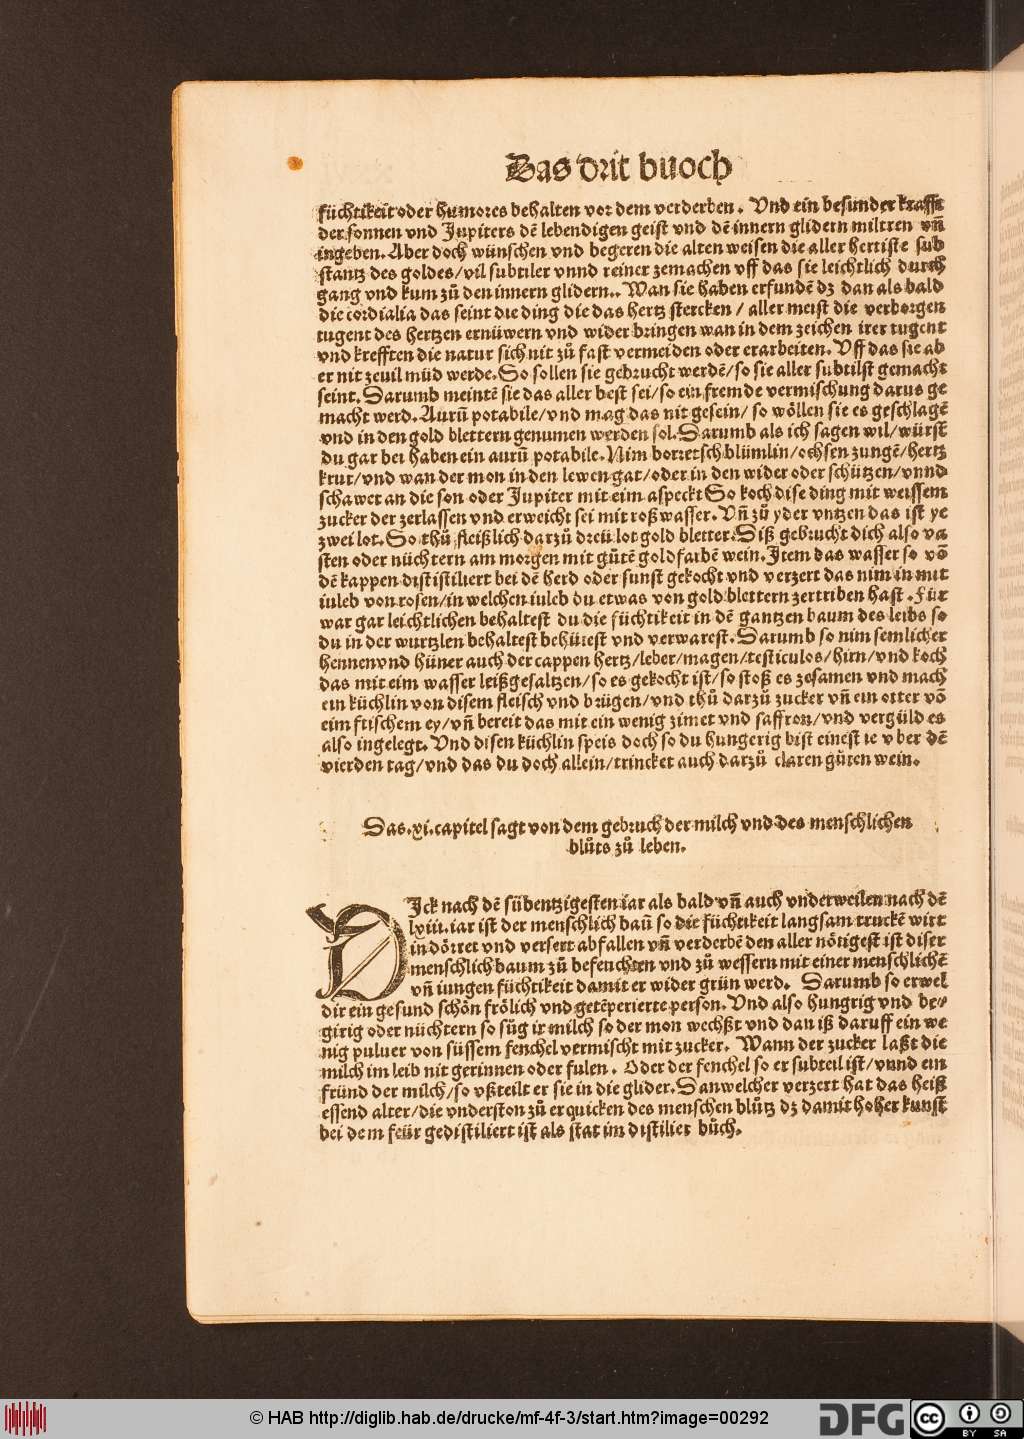 Das drit buoch
füchtikeit oder humores behalten vor dem verderben. Vnd ein besunder krafft
der sonnen vnd Jupiters dē lebendigen geist vnd dē innern glidern miltren vñ
ingeben. Aber doch wünschen vnd begeren die alten weisen die aller hertiste sub
stantz des goldes/vil subtiler vnnd reiner zemachen vff das sie leichtlich durch
gang vnd kum zů den innern glidern.. Wan sie haben erfundē dz dan als bald
die cordialia das seint die ding die das hertz stercken / aller meist die verborgen
tugent des hertzen ernüwern vnd wider bringen wan in dem zeichen irer tugent
vnd krefften die natur sich nit zů fast vermeiden oder erarbeiten. Vff das sie ab
er nit zeuil müd werde. So sollen sie gebrucht werdē/so sie aller subtilst gemacht
seint. Darumb meintē sie das aller best sei/so ein fremde vermischung darus ge
macht werd. Aurū potabile/vnd mag das nit gesein/ so wöllen sie es geschlagē
vnd in den gold blettern genumen werden sol. Darumb als ich sagen wil/würst
du gar bei haben ein aurū potabile. Nim borretsch blümlin/ochsen zungē/hertz
krut/vnd wan der mon in den lewen gat/oder in den wider oder schützen/vnnd
schawet an die son oder Jupiter mit eim aspeckt So koch dise ding mit weissem
zucker der zerlassen vnd erweicht sei mit roß wasser. Vñ zů yder vntzen das ist ye
zwei lot. So thů fleißlich darzů dreü lot gold bletter. Diß gebrucht dich also va
sten oder nüchtern am morgen mit gůtē goldfarbē wein. Item das wasser so vō
dē kappen dististiliert bei dē herd oder sunst gekocht vnd verzert das nim in mit
iuleb von rosen/in welchen iuleb du etwas von gold blettern zertriben hast. Für
war gar leichtlichen behaltest du die füchtikeit in dē gantzen baum des leibs so
du in der wurtzlen behaltest behütest vnd verwarest. Darumb so nim semlicher
hennenvnd hüner auch der cappen hertz/leber/magen/testiculos/hirn/vnd koch
das mit eim wasser leißgesaltzen/so es gekocht ist/so stoß es zesamen vnd mach
ein küchlin von disem fleisch vnd brügen/vnd thů darzů zucker vñ ein otter vō
eim frischem ey/vñ bereit das mit ein wenig zimet vnd saffron/vnd vergüld es
also ingelegt. Vnd disen küchlin speis doch so du hungerig bist einest ie vber dē
vierden tag/vnd das du doch allein/trincket auch darzů claren gůten wein.
Das .xi. capitel sagt von dem gebruch der milch vnd des menschlichen
blůts zů leben.
DIck nach dē sübentzigesten iar als bald vñ auch vnderweilen nach dē
lxiii. iar ist der menschlich baū so die füchtikeit langsam truckē wirt
in dörret vnd versert abfallen vñ verderbē den aller nötigest ist diser
menschlich baum zů befeuchten vnd zů wessern mit einer menschlichē
vñ iungen füchtikeit damit er wider grün werd. Darumb so erwel
dir ein gesund schön frölich vnd getēperierte person. Vnd also hungrig vnd be-
girig oder nüchtern so süg ir milch so der mon wechßt vnd dan iß daruff ein we
nig puluer von süssem fenchel vermischt mit zucker. Wann der zucker laßt die
milch im leib nit gerinnen oder fulen. Oder der fenchel so er subteil ist/vnnd ein
fründ der milch/so vßteilt er sie in die glider. Danwelcher verzert hat das heiß
essend alter/die vnderston zů erquicken des menschen blůtz dz damit hoher kunst
bei dem feür gedistiliert ist als stat im distilier bůch.
© HAB http://diglib.hab.de/drucke/mf-4f-3/start.htm?image=00292
DFG
cc
BY SA